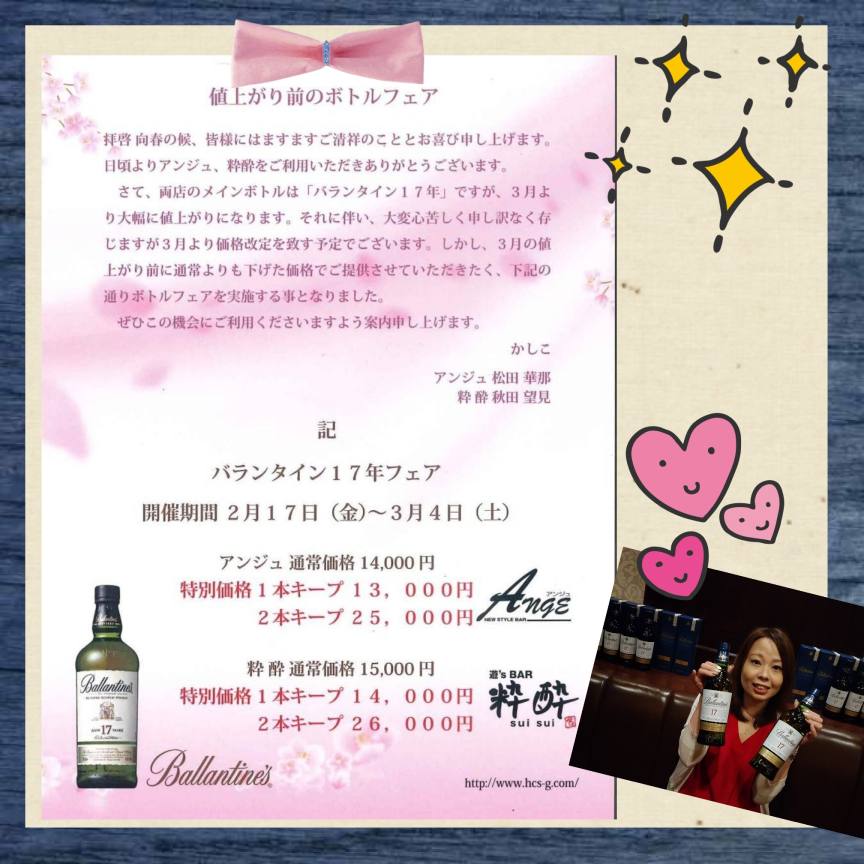 値上がり前のボトルフェア
拝啓 向春の候、皆様にはますますご清祥のこととお喜び申し上げます。
日頃よりアンジュ、粋酔をご利用いただきありがとうございます。
さて、両店のメインボトルは「バランタイン１７年」ですが、３月よ
り大幅に値上がりになります。それに伴い、大変心苦しく申し訳なく存
じますが３月より価格改定を致す予定でございます。しかし、３月の値
上がり前に通常よりも下げた価格でご提供させていただきたく、下記の
通りボトルフェアを実施する事となりました。
ぜひこの機会にご利用くださいますよう案内申し上げます。
かしこ
アンジュ 松田 華那
粋 酔 秋田 望見
記
バランタイン１７年フェア
開催期間 ２月１７日（金）～３月４日（土）
アンジュ 通常価格 14,000 円
特別価格１本キープ １３，０００円
２本キープ ２５，０００円
アンジュ
AngE
NEW STYLE BAR
粋 酔 通常価格 15,000 円
特別価格１本キープ １４，０００円
２本キープ ２６，０００円
遊's BAR
粋酔
sui sui
Ballantine's
17 YEARS
Ballantine's
http://www.hcs-g.com/
17
17